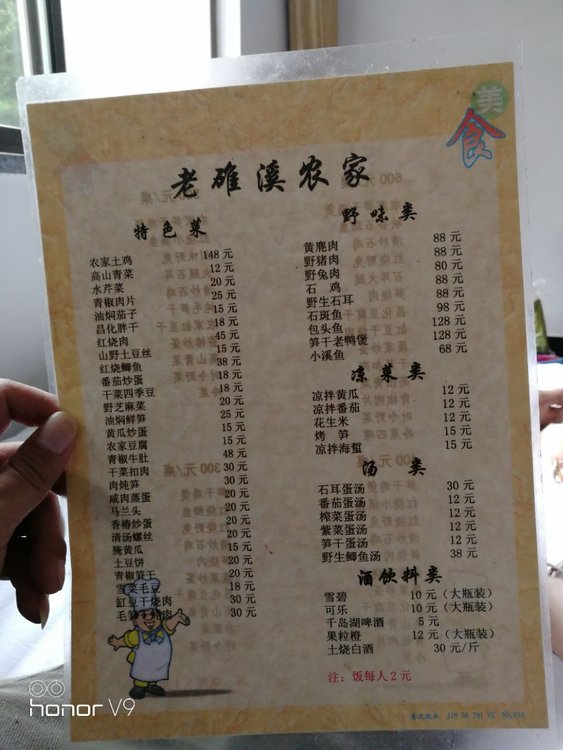 美
食
老碓溪农家
特色菜
农家土鸡 148元
高山青菜 12元
水芹菜 20元
青椒肉片 25元
油焖茄子 15元
昌化胖干 18元
红烧肉 45元
山野土豆丝 15元
红烧鲫鱼 38元
番茄炒蛋 18元
干菜四季豆 18元
野芝麻菜 20元
油焖鲜笋 25元
黄瓜炒蛋 15元
农家豆腐 15元
青椒牛肚 48元
干菜扣肉 30元
肉炖笋 30元
咸肉蒸蛋 20元
马兰头 20元
香椿炒蛋 20元
清汤螺丝 20元
腌黄瓜 15元
土豆饼 20元
青椒笋干 20元
雪菜毛豆 18元
缸豆干烧肉 30元
毛笋 肉 30元
野味类
黄麂肉 88元
野猪肉 88元
野兔肉 80元
石鸡 88元
野生石耳 88元
石斑鱼 98元
包头鱼 128元
笋干老鸭煲 128元
小溪鱼 68元
凉菜类
凉拌黄瓜 12元
凉拌番茄 12元
花生米 12元
烤笋 15元
凉拌海蜇 15元
汤类
石耳蛋汤 30元
番茄蛋汤 12元
榨菜蛋汤 12元
紫菜蛋汤 12元
笋干蛋汤 12元
野生鲫鱼汤 38元
酒饮料类
雪碧 10元（大瓶装）
可乐 10元（大瓶装）
千岛湖啤酒 5元
果粒橙 12元（大瓶装）
土烧白酒 30元/斤
注：饭每人2元
honor V9